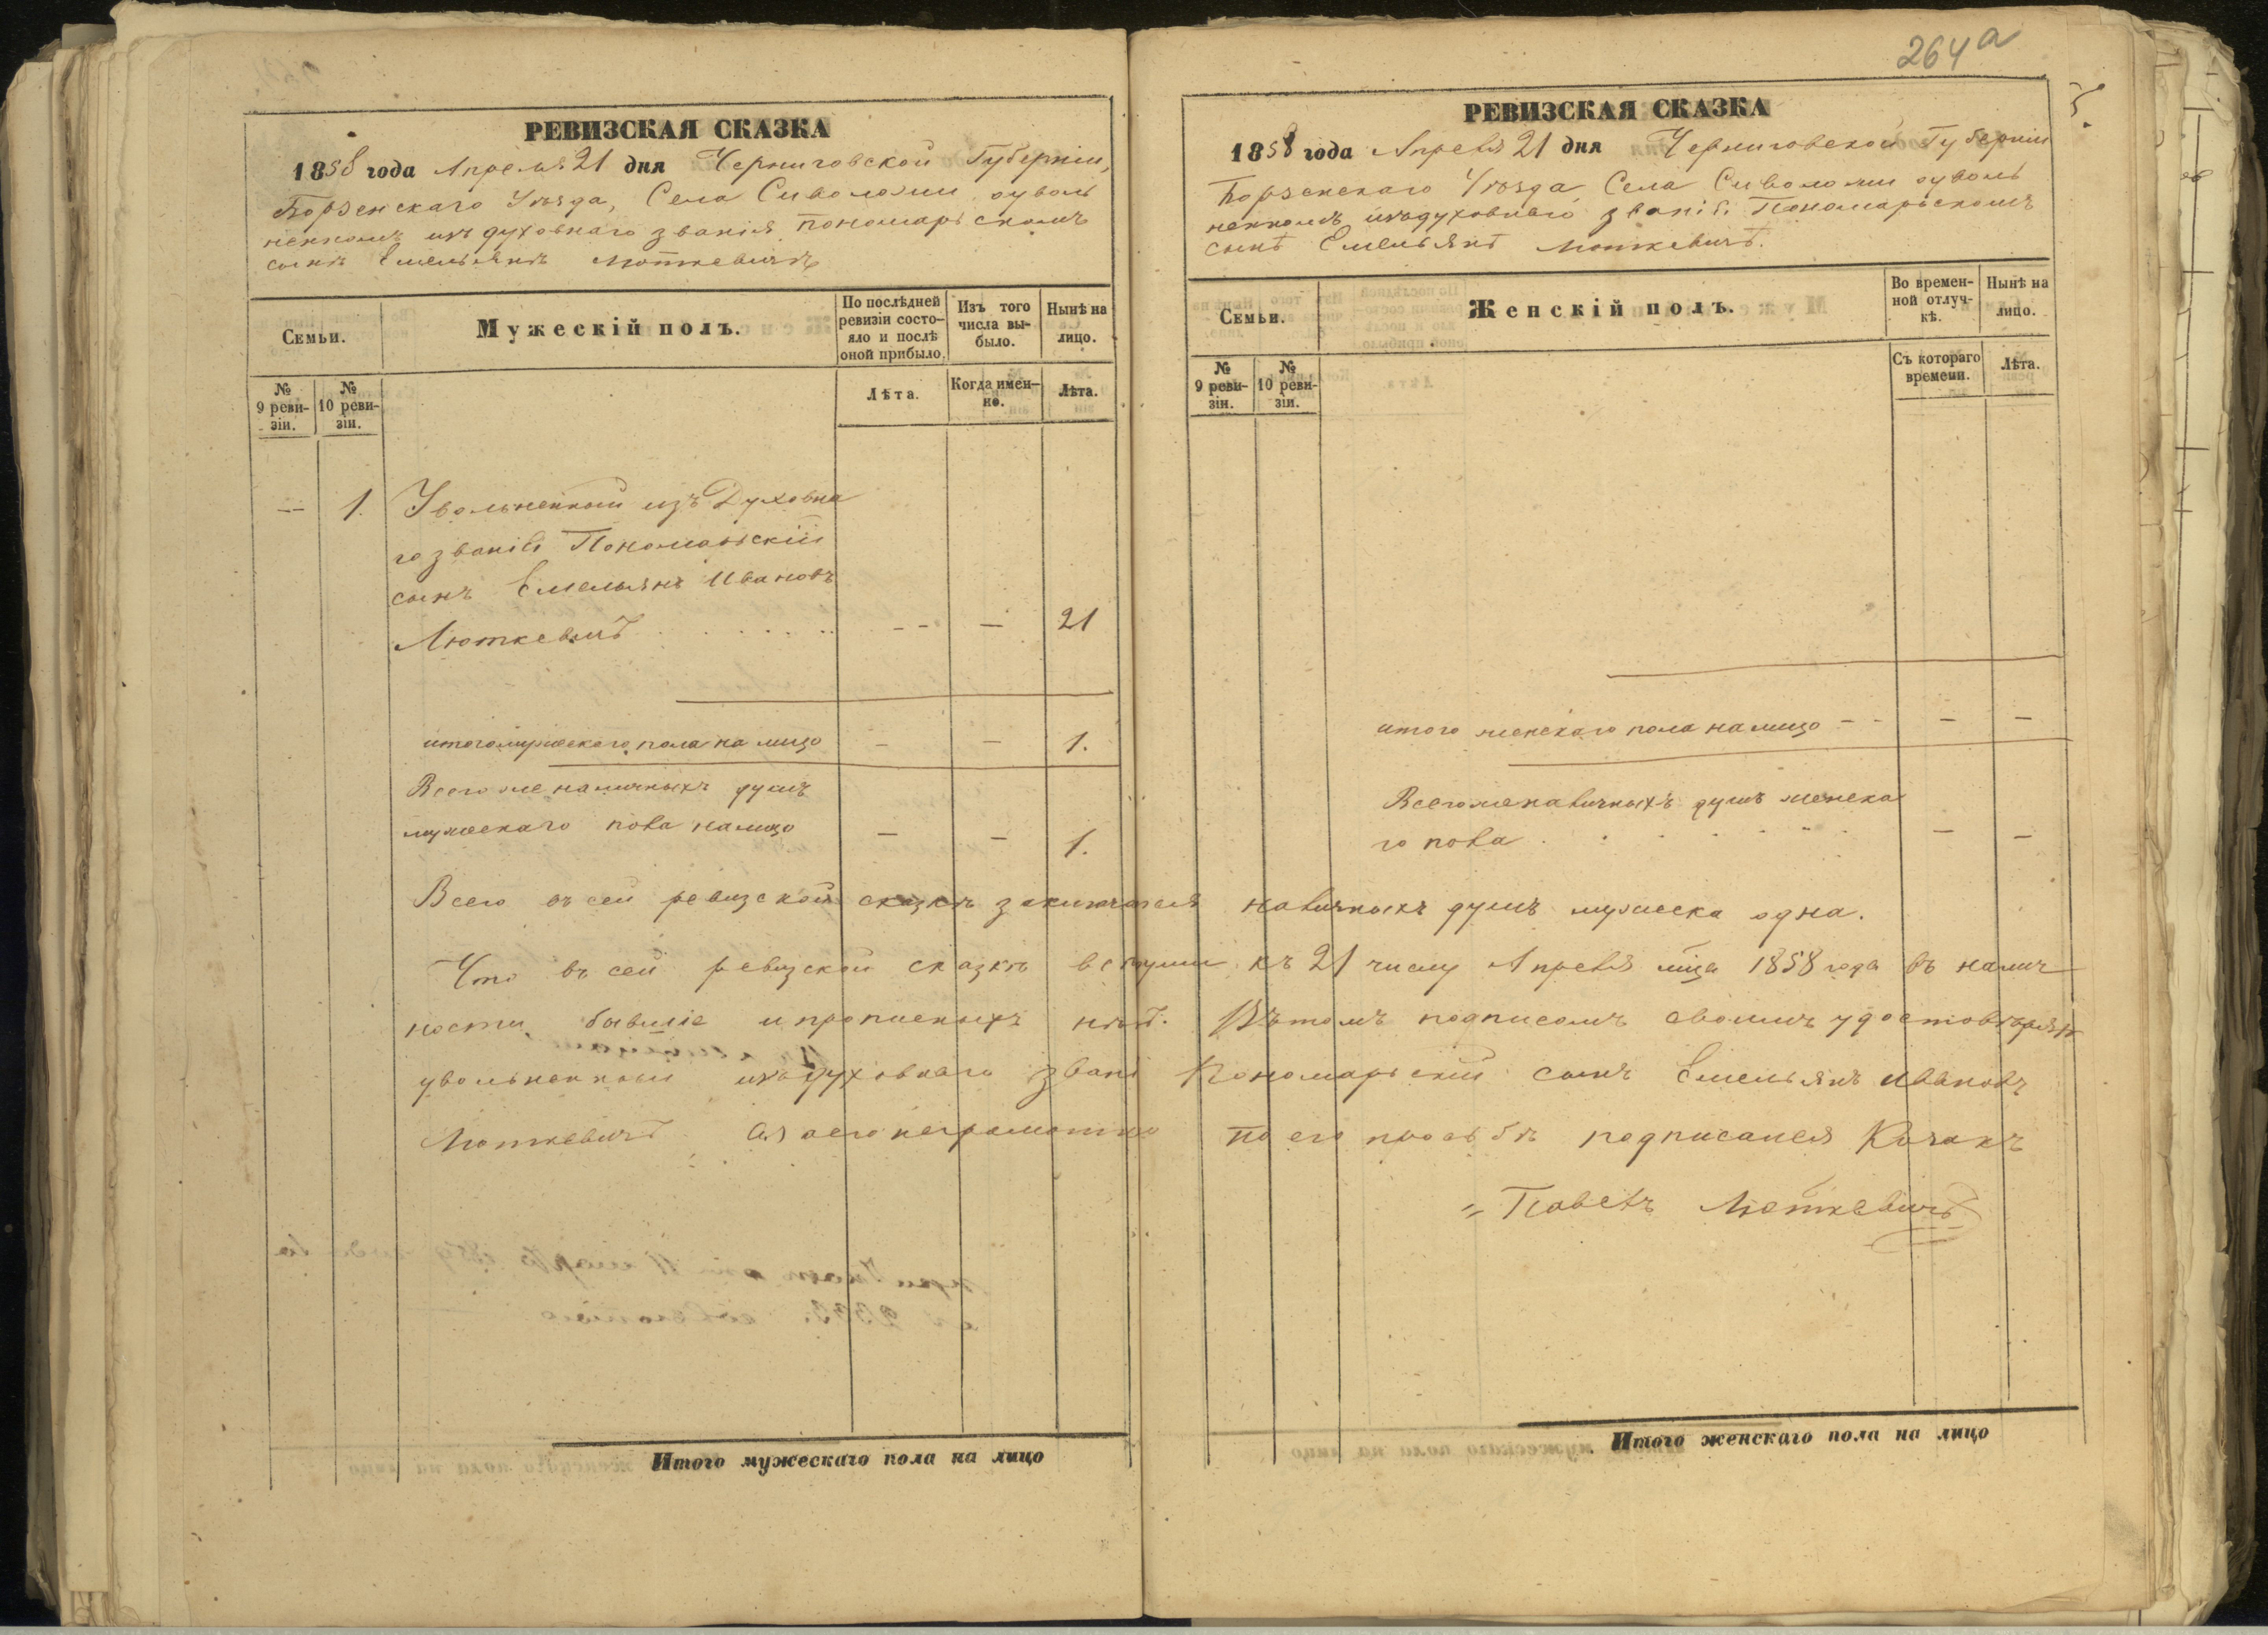 264а
РЕВИЗСКАЯ СКАЗКА
1858 года Апреля 21 дня Черниговской Губерніи,
Борзенскаго Уѣзда, Села Сиволожи оуволь
ненномъ изъ духовнаго званія пономарьскомъ
сынѣ Емельянѣ Люткевичѣ
Семьи.
Мужескій полъ.
По послѣдней
ревизіи состо-
яло и послѣ
оной прибыло.
Изъ того
числа вы-
было.
Нынѣ на
лицо.
№
9 реви-
зіи.
№
10 реви-
зіи.
Лѣта.
Когда имен-
но.
Лѣта.
— 1. Увольненный изъ Духовна
го званія Пономарьскій
сынъ Емельянъ Ивановъ
Люткевичъ . . . . . . -- — 21
итого мужескаго пола на лицо — — 1.
Всего же наличныхъ душъ
мужескаго пола на лицо — — 1.
РЕВИЗСКАЯ СКАЗКА
1858 года Апреля 21 дня Черниговской Губерніи
Борзенскаго Уѣзда Села Сиволожи оуволь
ненномъ изъ духовнаго званія Пономарьскомъ
сынѣ Емельянѣ Люткевичѣ.
Семьи.
Женскій полъ.
Во времен-
ной отлуч-
кѣ.
Нынѣ на
лицо.
№
9 реви-
зіи.
№
10 реви-
зіи.
Съ котораго
времени.
Лѣта.
итого женскаго пола на лицо -- — —
Всего же наличныхъ душъ женска
го пола . . . . . . — —
Всего въ сей ревизской сказкѣ заключается наличныхъ душъ мужеска одна.
Что въ сей ревизской сказкѣ къ 21 числу Апреля мца 1858 года въ налич
ности бывшіе и прописныхъ нѣтъ. Въ томъ подписомъ своимъ удостовѣряю
увольненный изъ духовнаго звані Пономарьскій сынъ Емельянъ Ивановъ
Люткевичъ, а за его неграмотно по его прозьбѣ подписался Козакъ
Павелъ Люткевичъ
Итого мужескаго пола на лицо
Итого женскаго пола на лицо